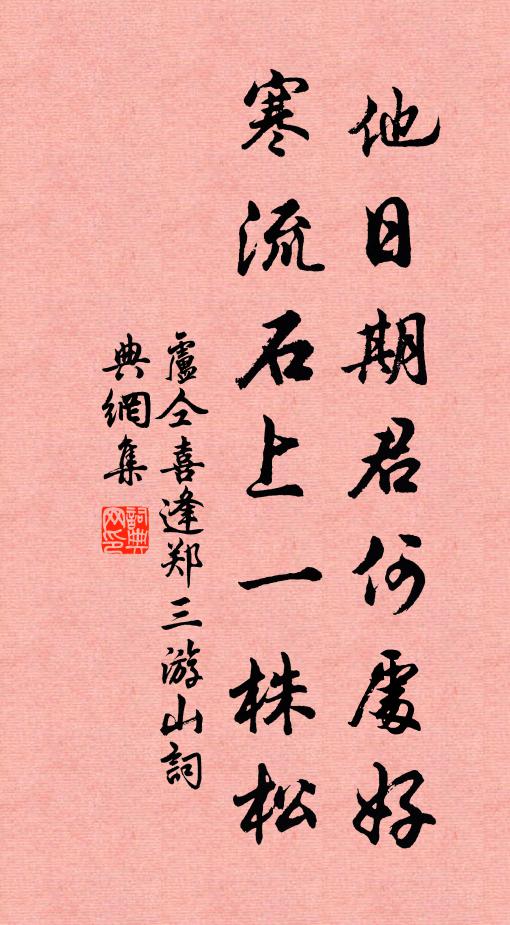 他日期君何處好
寒流石上一株松
盧仝喜逢郑三游山詞
典網集
詞典網印